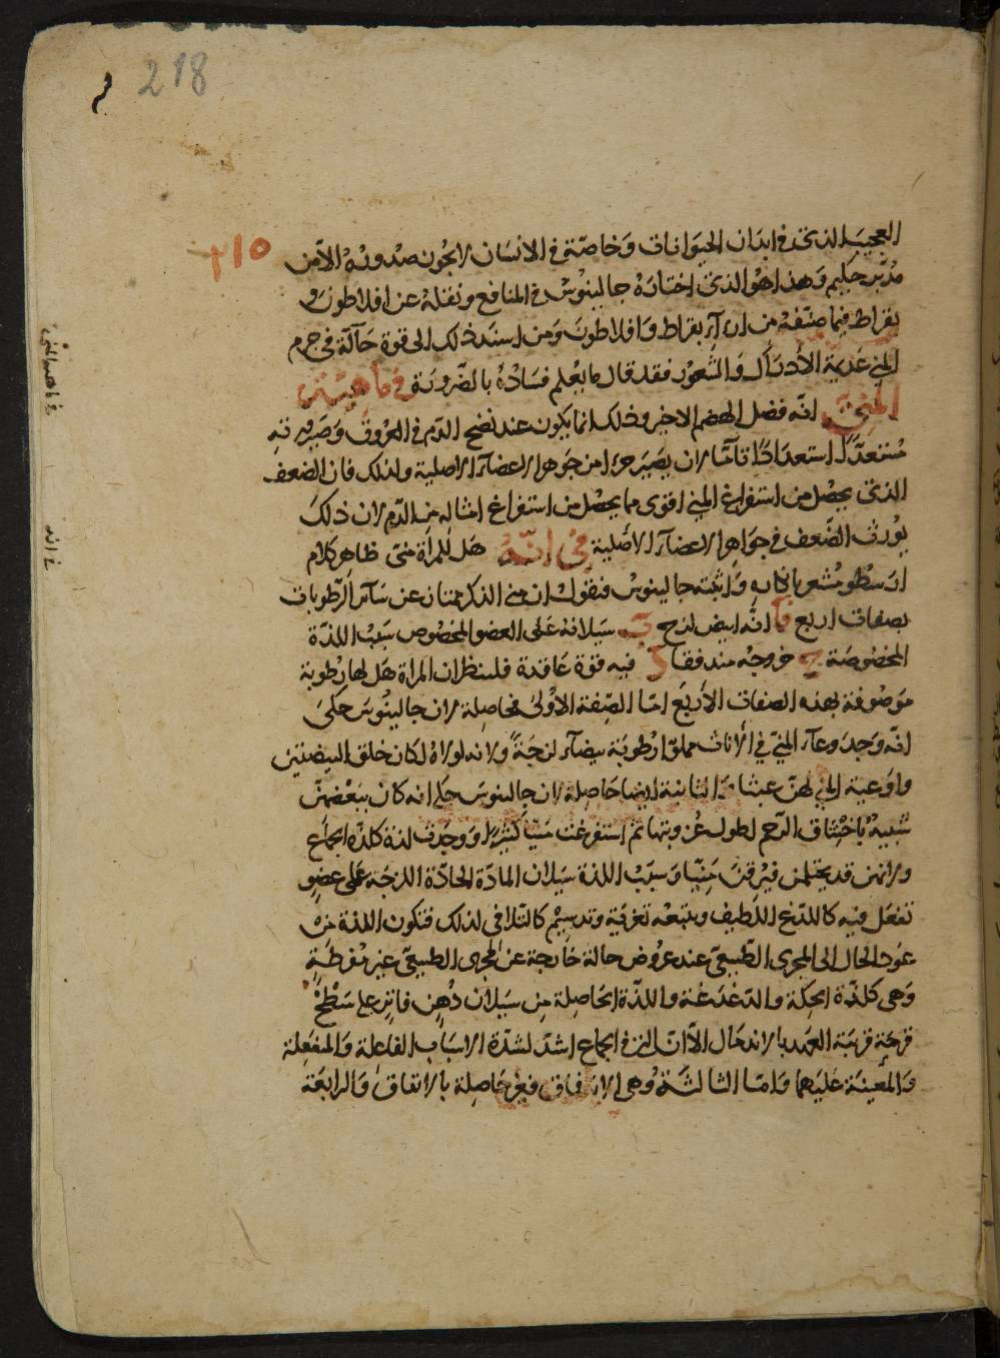 218
٢١٥
العجيب الذي في ابدان الحيوانات وخاصة في الانسان لا يجوز صدوره الا من
مدبر حكيم وهذا هو الذي اختاره جالينوس في المنافع ونقله عن افلاطون و
بقراط فيما صنفه من اراء بقراط وافلاطون ومن اسند ذلك الى قوة حالة في جرم
المني عديمة الأدراك والشعور فقد قال ما يعلم فساده بالضرورة في ماهية
المني انه فضل الهضم الاخير وذلك انما يكون عند نضج الدم في العروق وصيرورته
مستعدا استعدادا تاما لان يصير جزءا من جوهر الاعضاء الاصلية ولذلك فان الضعف
الذي يحصل من استفراغ المني اقوى مما يحصل من استفراغ امثاله من الدم لان ذلك
يورث الضعف في جواهر الاعضاء الأصلية في انه هل للمرأة مني ظاهر كلام
ارسطو مشعر بانكاره واثبته جالينوس فنقول ان مني الذكر ممتاز عن سائر الرطوبات
بصفات اربع آ انه ابيض لزج ب سيلانه على العضو المخصوص بسبب اللذة
المخصوصة ج خروجه مندفقا د فيه قوة عاقدة فلننظر ان المراة هل لها رطوبة
موصوفة بهذه الصفات الأربع اما الصفة الأولى فحاصلة لان جالينوس حكى
انه وجد وعاء المني في الأناث مملوا رطوبة بيضاء لزجة ولانه لولاه لكان خلق البيضتين
واوعية المني لهن عبثا الثانية ايضا حاصلة لان جالينوس حكى انه كان ببعضهن
شبيه باختناق الرحم لطول عزوبتها ثم استفرغت منيا كثيرا ووجدت لذة كلذة الجماع
ولانهن قد يحتلمن فيرقن منيا وسبب اللذة سيلان المادة الحادة اللزجة على عضو
تفعل فيه كاللذع اللطيف ويتبعه تغرية وتدسيم كالتلافي لذلك فتكون اللذة من
عود الحال الى المجرى الطبيعي عند عروض حالة خارجة عن المجرى الطبيعي غير مفرطة
وهي كلذة الحكة والدغدغة واللذة الحاصلة من سيلان دهن فاتر على سطح
قرحة قريبة العهد بالاندمال الا ان التي في الجماع اشد لشدة الاسباب الفاعلة والمنفعلة
والمعينة عليهما واما الثالثة وهي الاندفاق فغير حاصلة بالاتفاق والرابعة
في ماهية المني
في انه